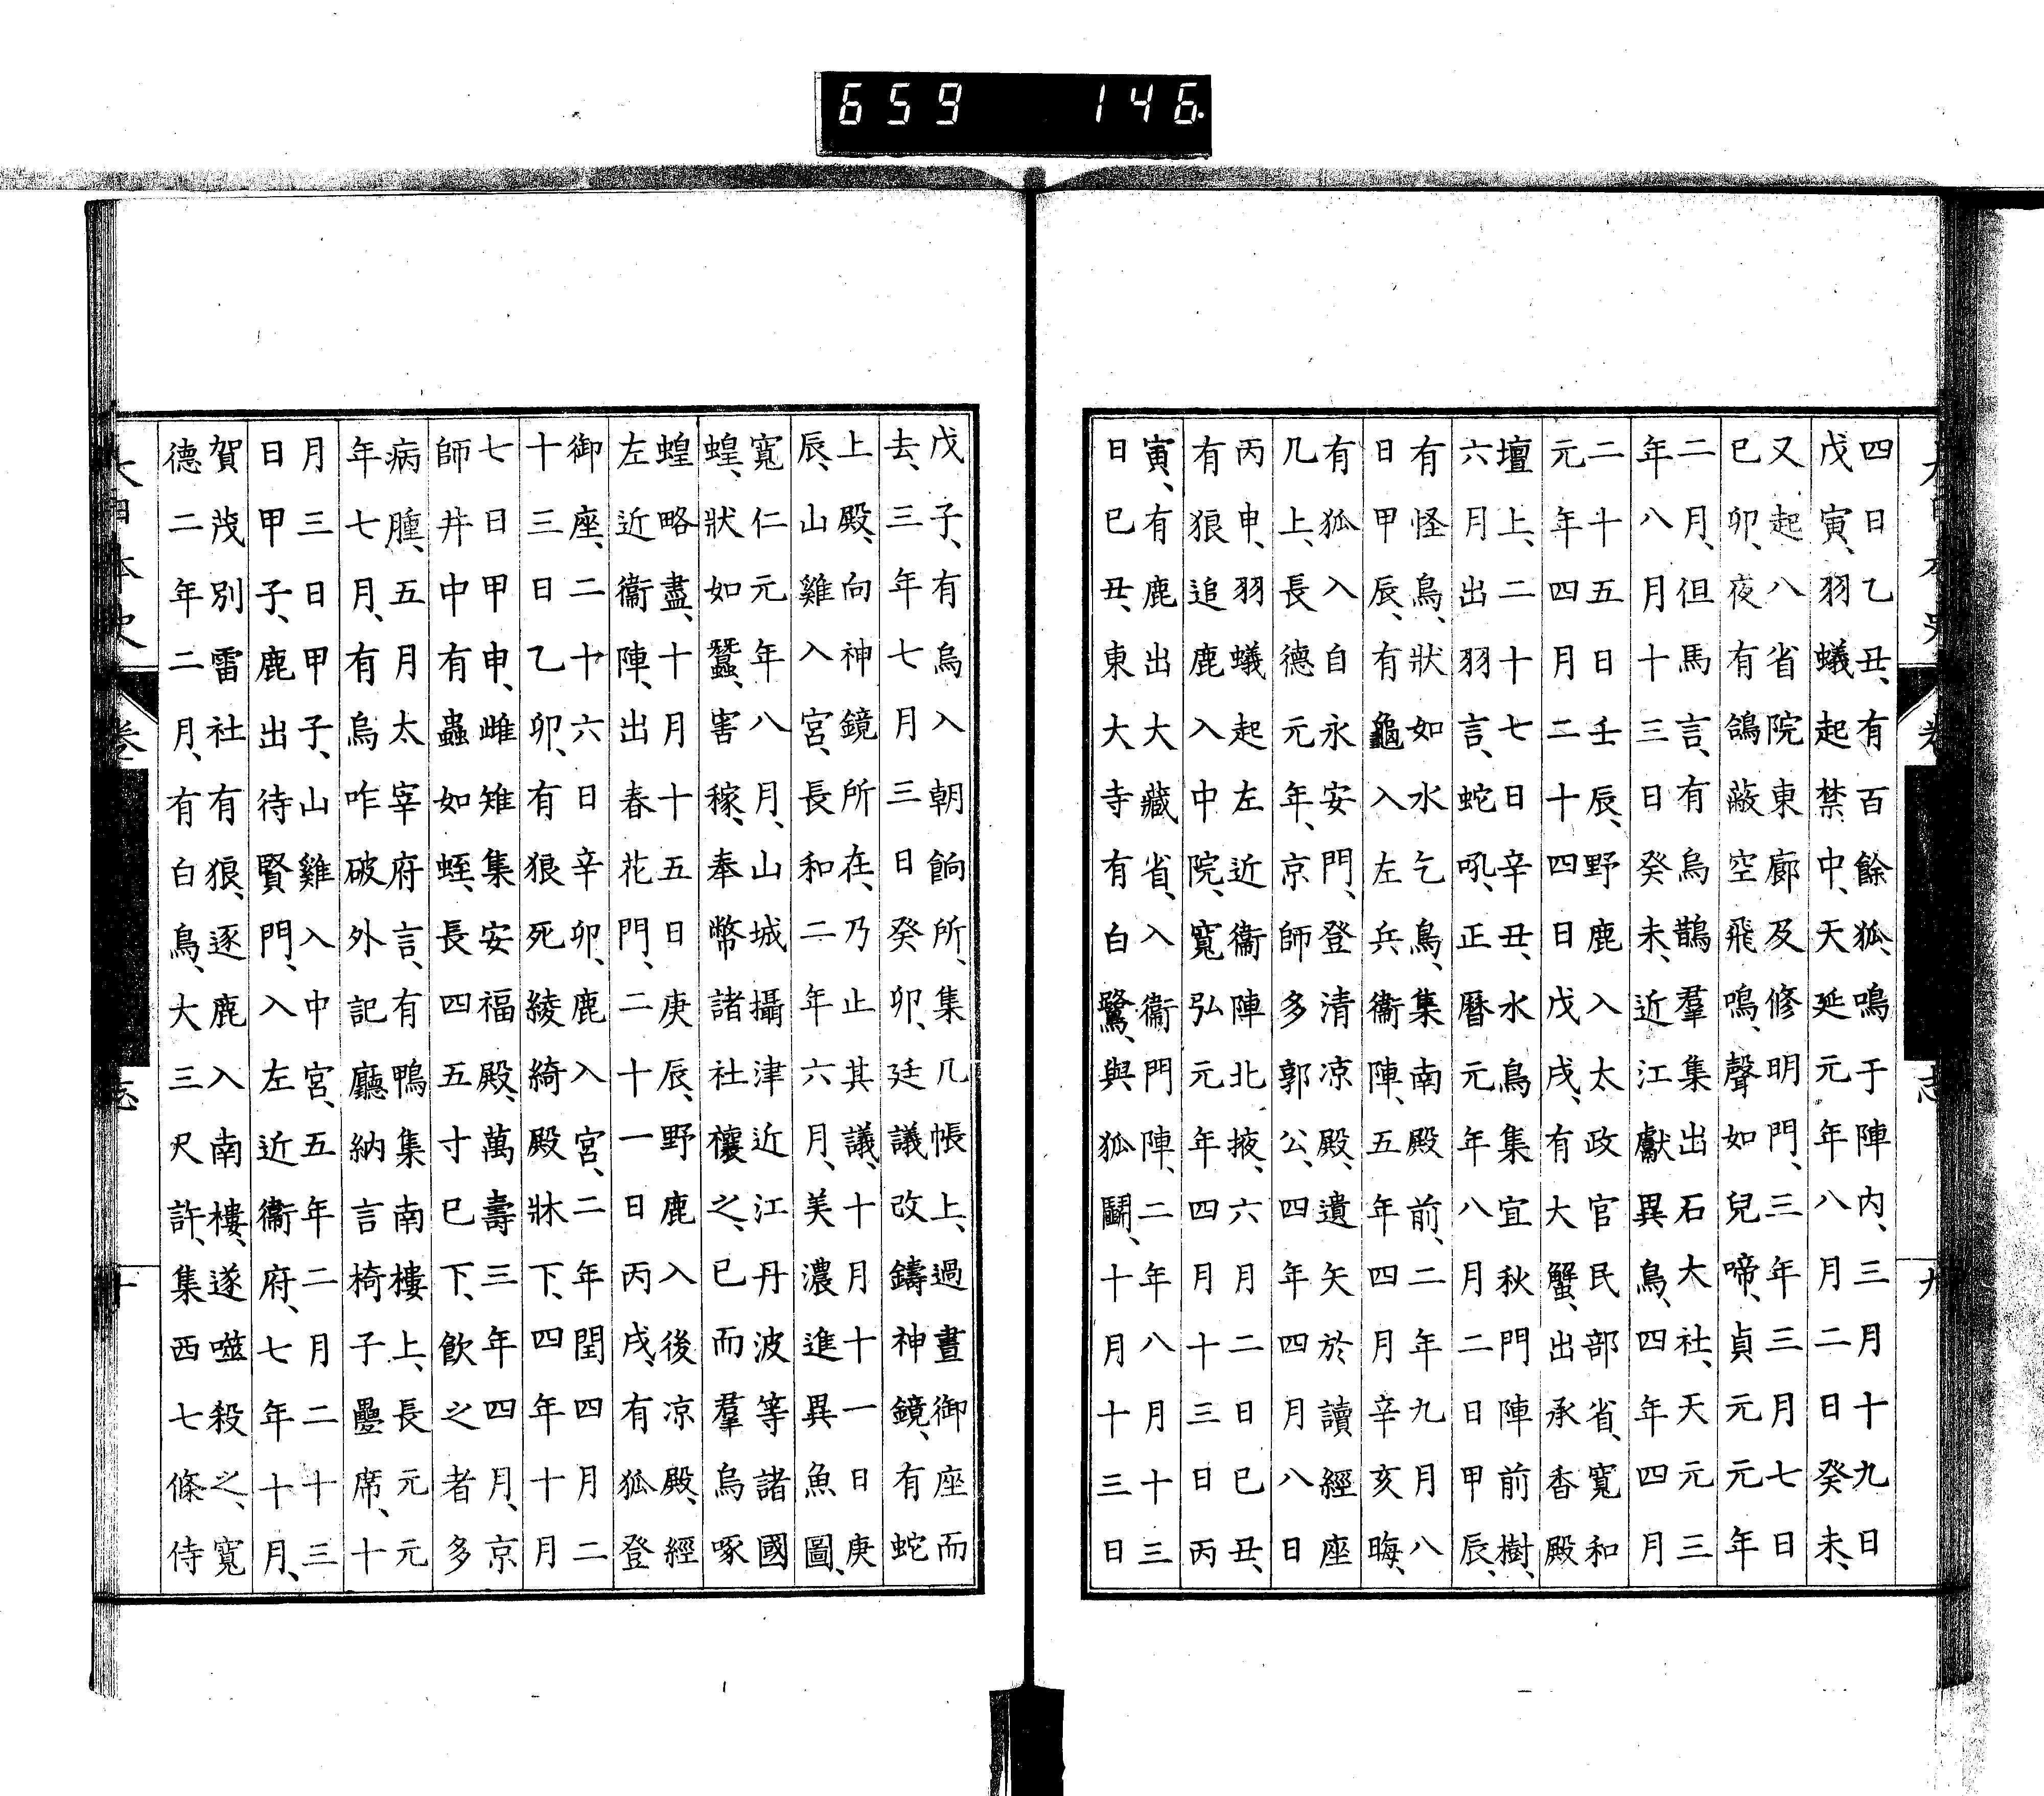 659 146
大日本史 卷 志 九
四日乙丑、有百餘狐、鳴于陣內、三月十九日
戊寅、羽蟻起禁中、天延元年八月二日癸未、
又起八省院東廊及修明門、三年三月七日
巳卯、夜有鴿蔽空飛鳴、聲如兒啼、貞元元年
二月、但馬言、有烏鵲羣集出石大社、天元三
年八月十三日癸未、近江獻異鳥、四年四月
二十五日壬辰、野鹿入太政官民部省、寬和
元年四月二十四日戊戌、有大蟹、出承香殿
壇上、二十七日辛丑、水鳥集宜秋門陣前樹、
六月出羽言、蛇吼、正曆元年八月二日甲辰、
有怪鳥、狀如水乞鳥、集南殿前、二年九月八
日甲辰、有龜入左兵衞陣、五年四月辛亥晦、
有狐入自永安門、登清凉殿、遺矢於讀經座
几上、長德元年、京師多郭公、四年四月八日
丙申、羽蟻起左近衞陣北掖、六月二日巳丑、
有狼追鹿入中院、寬弘元年四月十三日丙
寅、有鹿出大藏省、入衞門陣、二年八月十三
日巳丑、東大寺有白鷺、與狐鬭、十月十三日
戊子、有烏入朝餉所、集几帳上、過晝御座而
去、三年七月三日癸卯、廷議改鑄神鏡、有蛇
上殿、向神鏡所在、乃止其議、十月十一日庚
辰、山雞入宮、長和二年六月、美濃進異魚圖、
寬仁元年八月、山城攝津近江丹波等諸國
蝗、狀如蠶、害稼、奉幣諸社禳之、已而羣烏啄
蝗略盡、十月十五日庚辰、野鹿入後凉殿、經
左近衞陣、出春花門、二十一日丙戌、有狐登
御座、二十六日辛卯、鹿入宮、二年閏四月二
十三日乙卯、有狼死綾綺殿牀下、四年十月
七日甲申、雌雉集安福殿、萬壽三年四月、京
師井中有蟲如蛭、長四五寸巳下、飲之者多
病腫、五月太宰府言、有鴨集南樓上、長元元
年七月、有烏咋破外記廳納言椅子疊席、十
月三日甲子、山雞入中宮、五年二月二十三
日甲子、鹿出待賢門、入左近衞府、七年十月、
賀茂別雷社有狼、逐鹿入南樓、遂噬殺之、寬
德二年二月、有白鳥、大三尺許、集西七條侍
大日本史 卷 志 十